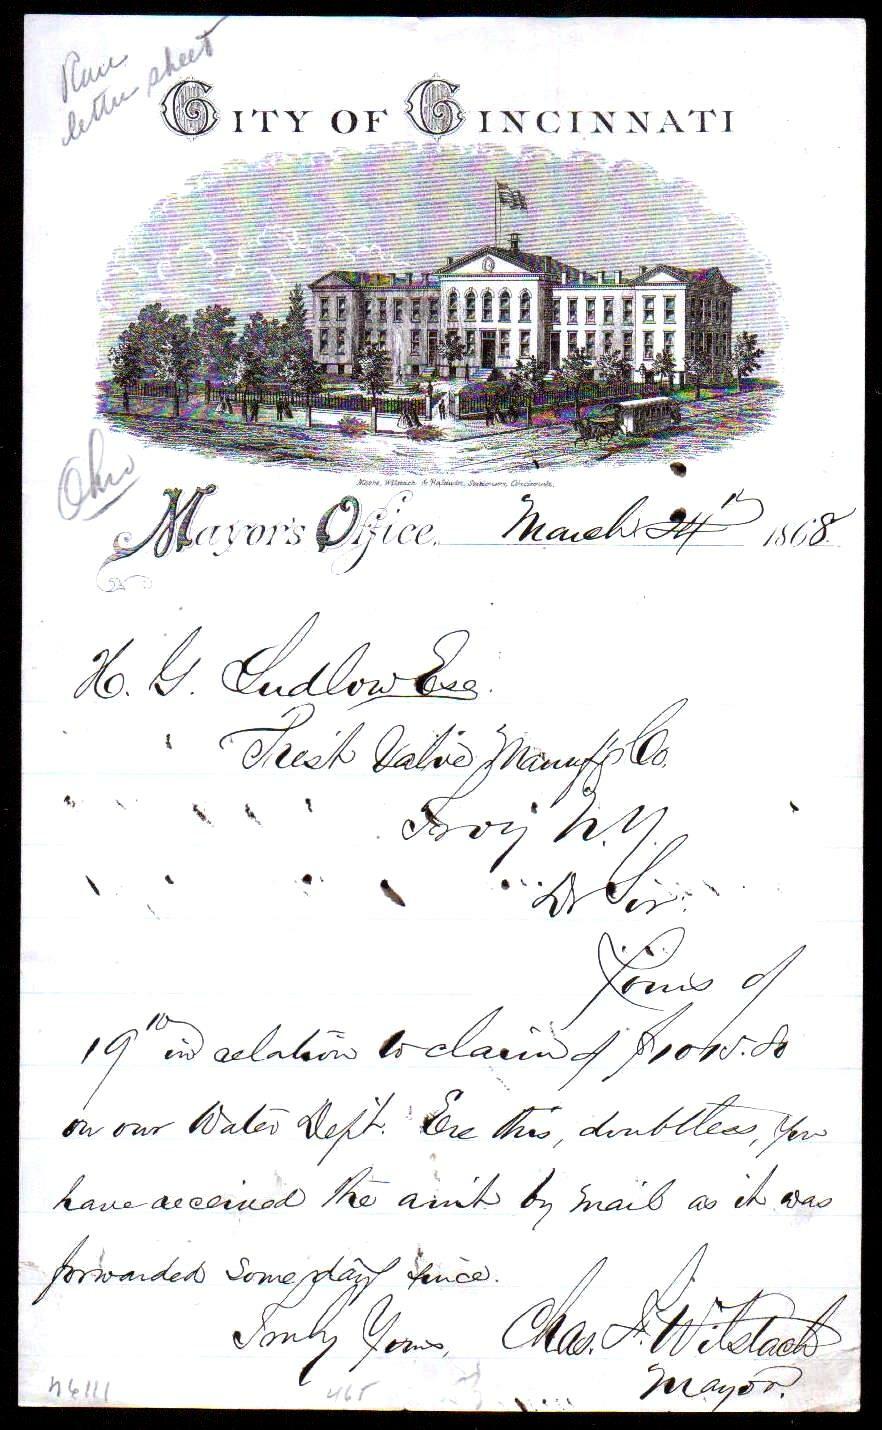 Rare
letter sheet
CITY OF CINCINNATI
Moore, Wilstach & Baldwin, Stationers, Cincinnati.
Ohio
Mayor's Office, March 24th 1868
H. G. Ludlow Esq.
Prest Valve Manuf'g Co.
Troy N.Y.
Dr Sir:
Yours of
19th in relation to claim of $1015.80
on our Water Dept. Ere this, doubtless, you
have received the am't by mail as it was
forwarded some days since.
Truly Yours, Chas. F. Wilstach
Mayor.
465